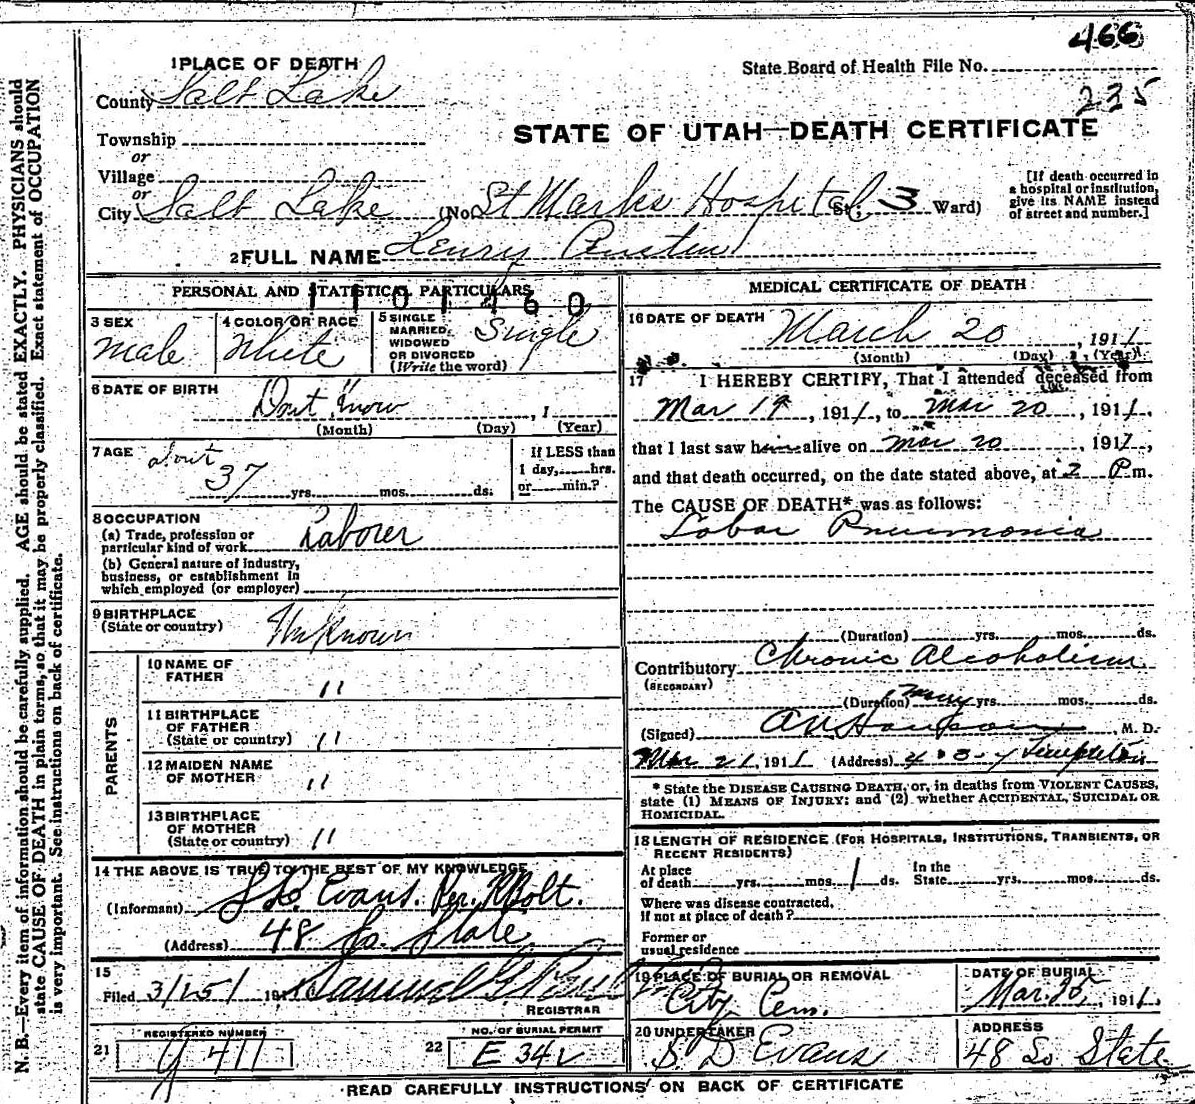 466
State Board of Health File No.
235
1 PLACE OF DEATH
County Salt Lake
STATE OF UTAH—DEATH CERTIFICATE
Township
or
Village
or
City Salt Lake (No. St Marks Hospital St., 3 Ward)
[If death occurred in a hospital or institution, give its NAME instead of street and number.]
2 FULL NAME Henry
PERSONAL AND STATISTICAL PARTICULARS
1101460
3 SEX
Male
4 COLOR OR RACE
White
5 SINGLE MARRIED, WIDOWED OR DIVORCED (Write the word)
Single
6 DATE OF BIRTH
Dont Know , 1
(Month) (Day) (Year)
7 AGE
about 37 yrs. mos. ds.
If LESS than 1 day, hrs. or min.?
8 OCCUPATION
(a) Trade, profession or particular kind of work Laborer
(b) General nature of industry, business, or establishment in which employed (or employer)
9 BIRTHPLACE
(State or country) Unknown
PARENTS
10 NAME OF FATHER "
11 BIRTHPLACE OF FATHER (State or country) "
12 MAIDEN NAME OF MOTHER "
13 BIRTHPLACE OF MOTHER (State or country) "
14 THE ABOVE IS TRUE TO THE BEST OF MY KNOWLEDGE
(Informant) S. D. Evans. Per. R Bolt.
(Address) 48 So. State
15
Filed 3/25/ 191 Samuel G
REGISTRAR
21 REGISTERED NUMBER
G 411
22 NO. OF BURIAL PERMIT
E 342
MEDICAL CERTIFICATE OF DEATH
16 DATE OF DEATH
March 20 , 1911
(Month) (Day) (Year)
17 I HEREBY CERTIFY, That I attended deceased from
Mar 19 , 1911, to Mar 20 , 1911,
that I last saw him alive on Mar 20 , 1911,
and that death occurred, on the date stated above, at 2 P m.
The CAUSE OF DEATH* was as follows:
Lobar Pneumonia
(Duration) yrs. mos. ds.
Contributory Chronic Alcoholism
(SECONDARY)
(Duration) many yrs. mos. ds.
(Signed) M. D.
Mar 21, 1911 (Address) 403-7 Templeton
* State the DISEASE CAUSING DEATH, or, in deaths from VIOLENT CAUSES, state (1) MEANS OF INJURY; and (2) whether ACCIDENTAL, SUICIDAL OR HOMICIDAL.
18 LENGTH OF RESIDENCE (FOR HOSPITALS, INSTITUTIONS, TRANSIENTS, OR RECENT RESIDENTS)
At place of death yrs. mos. 1 ds. In the State yrs. mos. ds.
Where was disease contracted, if not at place of death?
Former or usual residence
19 PLACE OF BURIAL OR REMOVAL
City Cem.
DATE OF BURIAL
Mar. 25, 1911
20 UNDERTAKER
S. D Evans
ADDRESS
48 So State
READ CAREFULLY INSTRUCTIONS ON BACK OF CERTIFICATE
N. B.—Every item of information should be carefully supplied. AGE should be stated EXACTLY. PHYSICIANS should
state CAUSE OF DEATH in plain terms, so that it may be properly classified. Exact statement of OCCUPATION
is very important. See instructions on back of certificate.